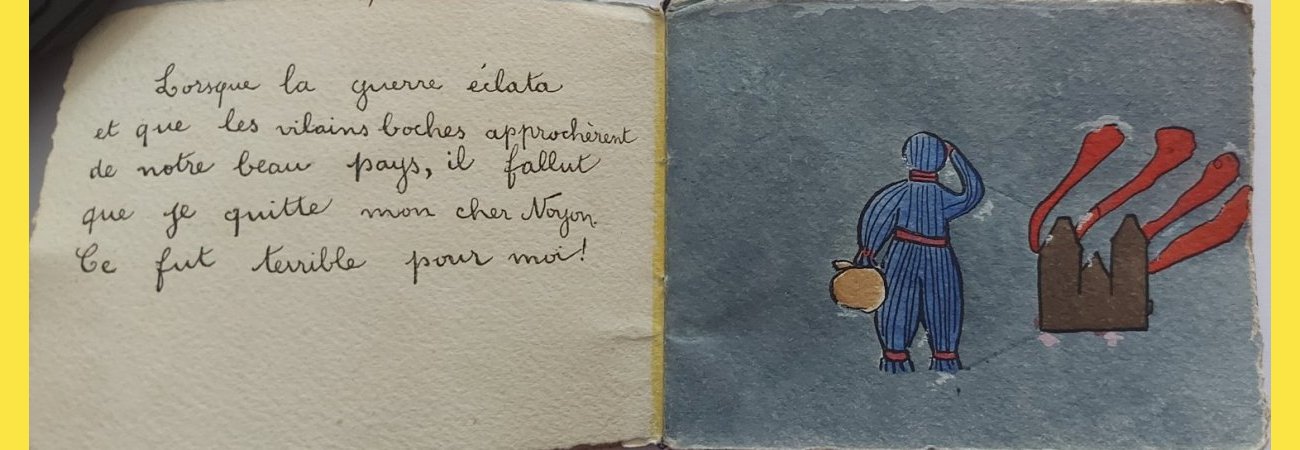 Lorsque la guerre éclata
et que les vilains boches approchèrent
de notre beau pays, il fallut
que je quitte mon cher Noyon.
Ce fut terrible pour moi!